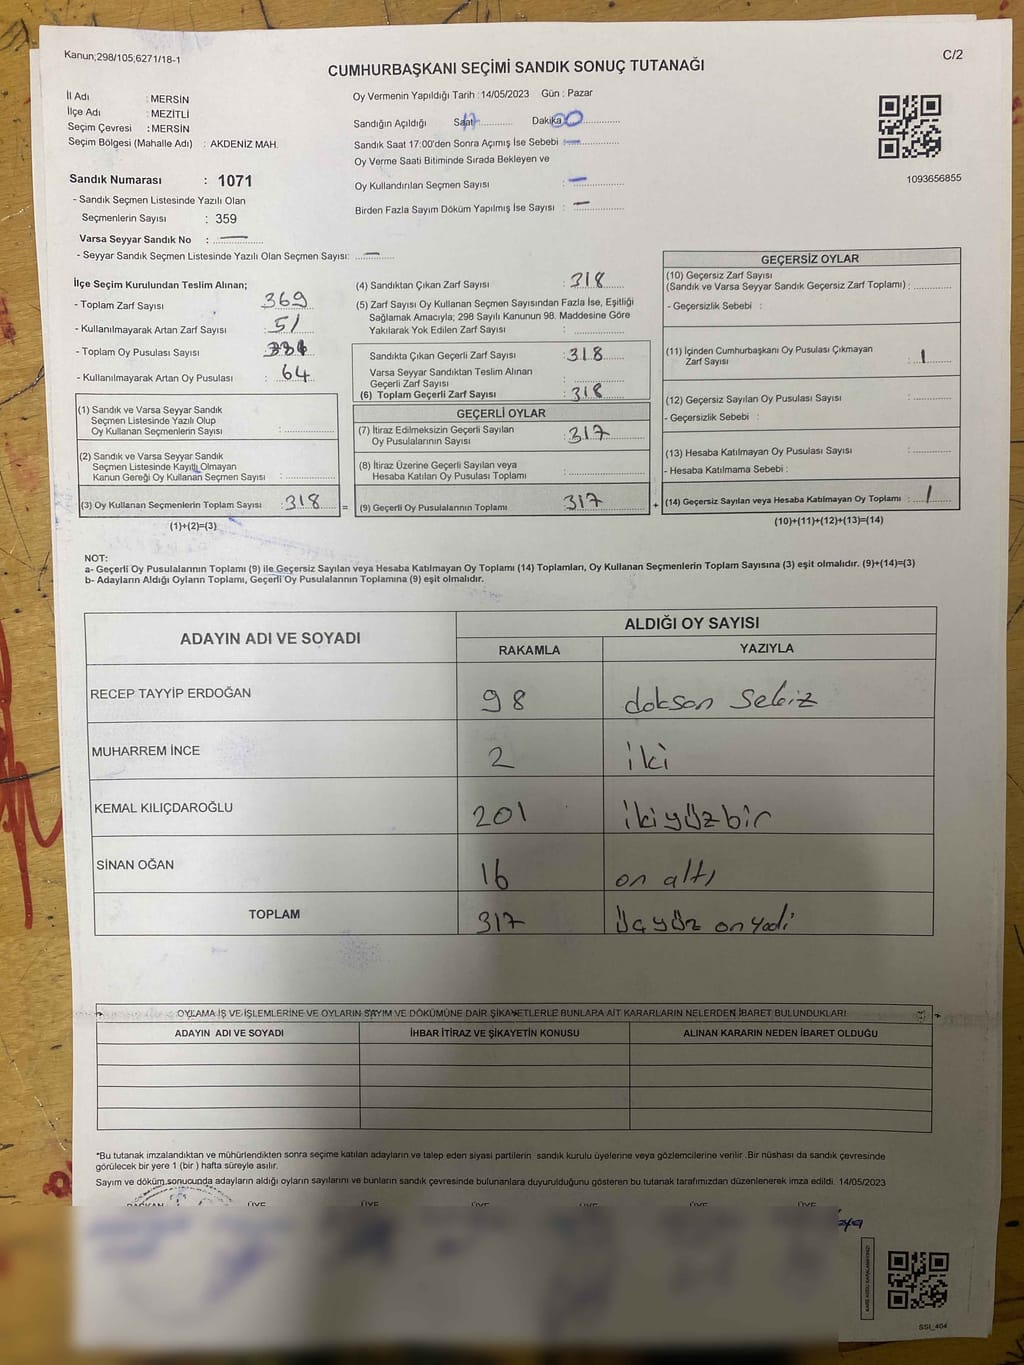 Kanun;298/105;6271/18-1
C/2
CUMHURBAŞKANI SEÇİMİ SANDIK SONUÇ TUTANAĞI
İl Adı : MERSİN
İlçe Adı : MEZİTLİ
Seçim Çevresi : MERSİN
Seçim Bölgesi (Mahalle Adı) : AKDENİZ MAH.
Oy Vermenin Yapıldığı Tarih : 14/05/2023 Gün : Pazar
Sandığın Açıldığı Saat 17 Dakika 00
Sandık Saat 17:00'den Sonra Açımış İse Sebebi : —
Oy Verme Saati Bitiminde Sırada Bekleyen ve
Oy Kullandırılan Seçmen Sayısı : —
Birden Fazla Sayım Döküm Yapılmış İse Sayısı : —
1093656855
Sandık Numarası : 1071
- Sandık Seçmen Listesinde Yazılı Olan
Seçmenlerin Sayısı : 359
Varsa Seyyar Sandık No : —
- Seyyar Sandık Seçmen Listesinde Yazılı Olan Seçmen Sayısı: —
İlçe Seçim Kurulundan Teslim Alınan;
- Toplam Zarf Sayısı : 369
- Kullanılmayarak Artan Zarf Sayısı : 51
- Toplam Oy Pusulası Sayısı :
- Kullanılmayarak Artan Oy Pusulası : 64
(1) Sandık ve Varsa Seyyar Sandık
Seçmen Listesinde Yazılı Olup
Oy Kullanan Seçmenlerin Sayısı :
(2) Sandık ve Varsa Seyyar Sandık
Seçmen Listesinde Kayıtlı Olmayan
Kanun Gereği Oy Kullanan Seçmen Sayısı :
(3) Oy Kullanan Seçmenlerin Toplam Sayısı : 318 =
(1)+(2)=(3)
(4) Sandıktan Çıkan Zarf Sayısı : 318
(5) Zarf Sayısı Oy Kullanan Seçmen Sayısından Fazla İse, Eşitliği
Sağlamak Amacıyla; 298 Sayılı Kanunun 98. Maddesine Göre
Yakılarak Yok Edilen Zarf Sayısı :
Sandıkta Çıkan Geçerli Zarf Sayısı : 318
Varsa Seyyar Sandıktan Teslim Alınan
Geçerli Zarf Sayısı :
(6) Toplam Geçerli Zarf Sayısı : 318
GEÇERLİ OYLAR
(7) İtiraz Edilmeksizin Geçerli Sayılan
Oy Pusulalarının Sayısı : 317
(8) İtiraz Üzerine Geçerli Sayılan veya
Hesaba Katılan Oy Pusulası Toplamı :
(9) Geçerli Oy Pusulalarının Toplamı : 317 +
GEÇERSİZ OYLAR
(10) Geçersiz Zarf Sayısı
(Sandık ve Varsa Seyyar Sandık Geçersiz Zarf Toplamı) :
- Geçersizlik Sebebi :
(11) İçinden Cumhurbaşkanı Oy Pusulası Çıkmayan
Zarf Sayısı : 1
(12) Geçersiz Sayılan Oy Pusulası Sayısı :
- Geçersizlik Sebebi :
(13) Hesaba Katılmayan Oy Pusulası Sayısı :
- Hesaba Katılmama Sebebi :
(14) Geçersiz Sayılan veya Hesaba Katılmayan Oy Toplamı : 1
(10)+(11)+(12)+(13)=(14)
NOT:
a- Geçerli Oy Pusulalarının Toplamı (9) ile Geçersiz Sayılan veya Hesaba Katılmayan Oy Toplamı (14) Toplamları, Oy Kullanan Seçmenlerin Toplam Sayısına (3) eşit olmalıdır. (9)+(14)=(3)
b- Adayların Aldığı Oyların Toplamı, Geçerli Oy Pusulalarının Toplamına (9) eşit olmalıdır.
ADAYIN ADI VE SOYADI
ALDIĞI OY SAYISI
RAKAMLA YAZIYLA
RECEP TAYYİP ERDOĞAN 98 doksan sekiz
MUHARREM İNCE 2 iki
KEMAL KILIÇDAROĞLU 201 ikiyüzbir
SİNAN OĞAN 16 on altı
TOPLAM 317 üçyüz onyedi
OYLAMA İŞ VE İŞLEMLERİNE VE OYLARIN SAYIM VE DÖKÜMÜNE DAİR ŞİKAYETLERLE BUNLARA AİT KARARLARIN NELERDEN İBARET BULUNDUKLARI
ADAYIN ADI VE SOYADI İHBAR İTİRAZ VE ŞİKAYETİN KONUSU ALINAN KARARIN NEDEN İBARET OLDUĞU
*Bu tutanak imzalandıktan ve mühürlendikten sonra seçime katılan adayların ve talep eden siyasi partilerin sandık kurulu üyelerine veya gözlemcilerine verilir .Bir nüshası da sandık çevresinde
görülecek bir yere 1 (bir ) hafta süreyle asılır.
Sayım ve döküm sonucunda adayların aldığı oyların sayılarını ve bunların sandık çevresinde bulunanlara duyurulduğunu gösteren bu tutanak tarafımızdan düzenlenerek imza edildi. 14/05/2023
BAŞKAN ÜYE ÜYE ÜYE ÜYE ÜYE ÜYE
SSI_404